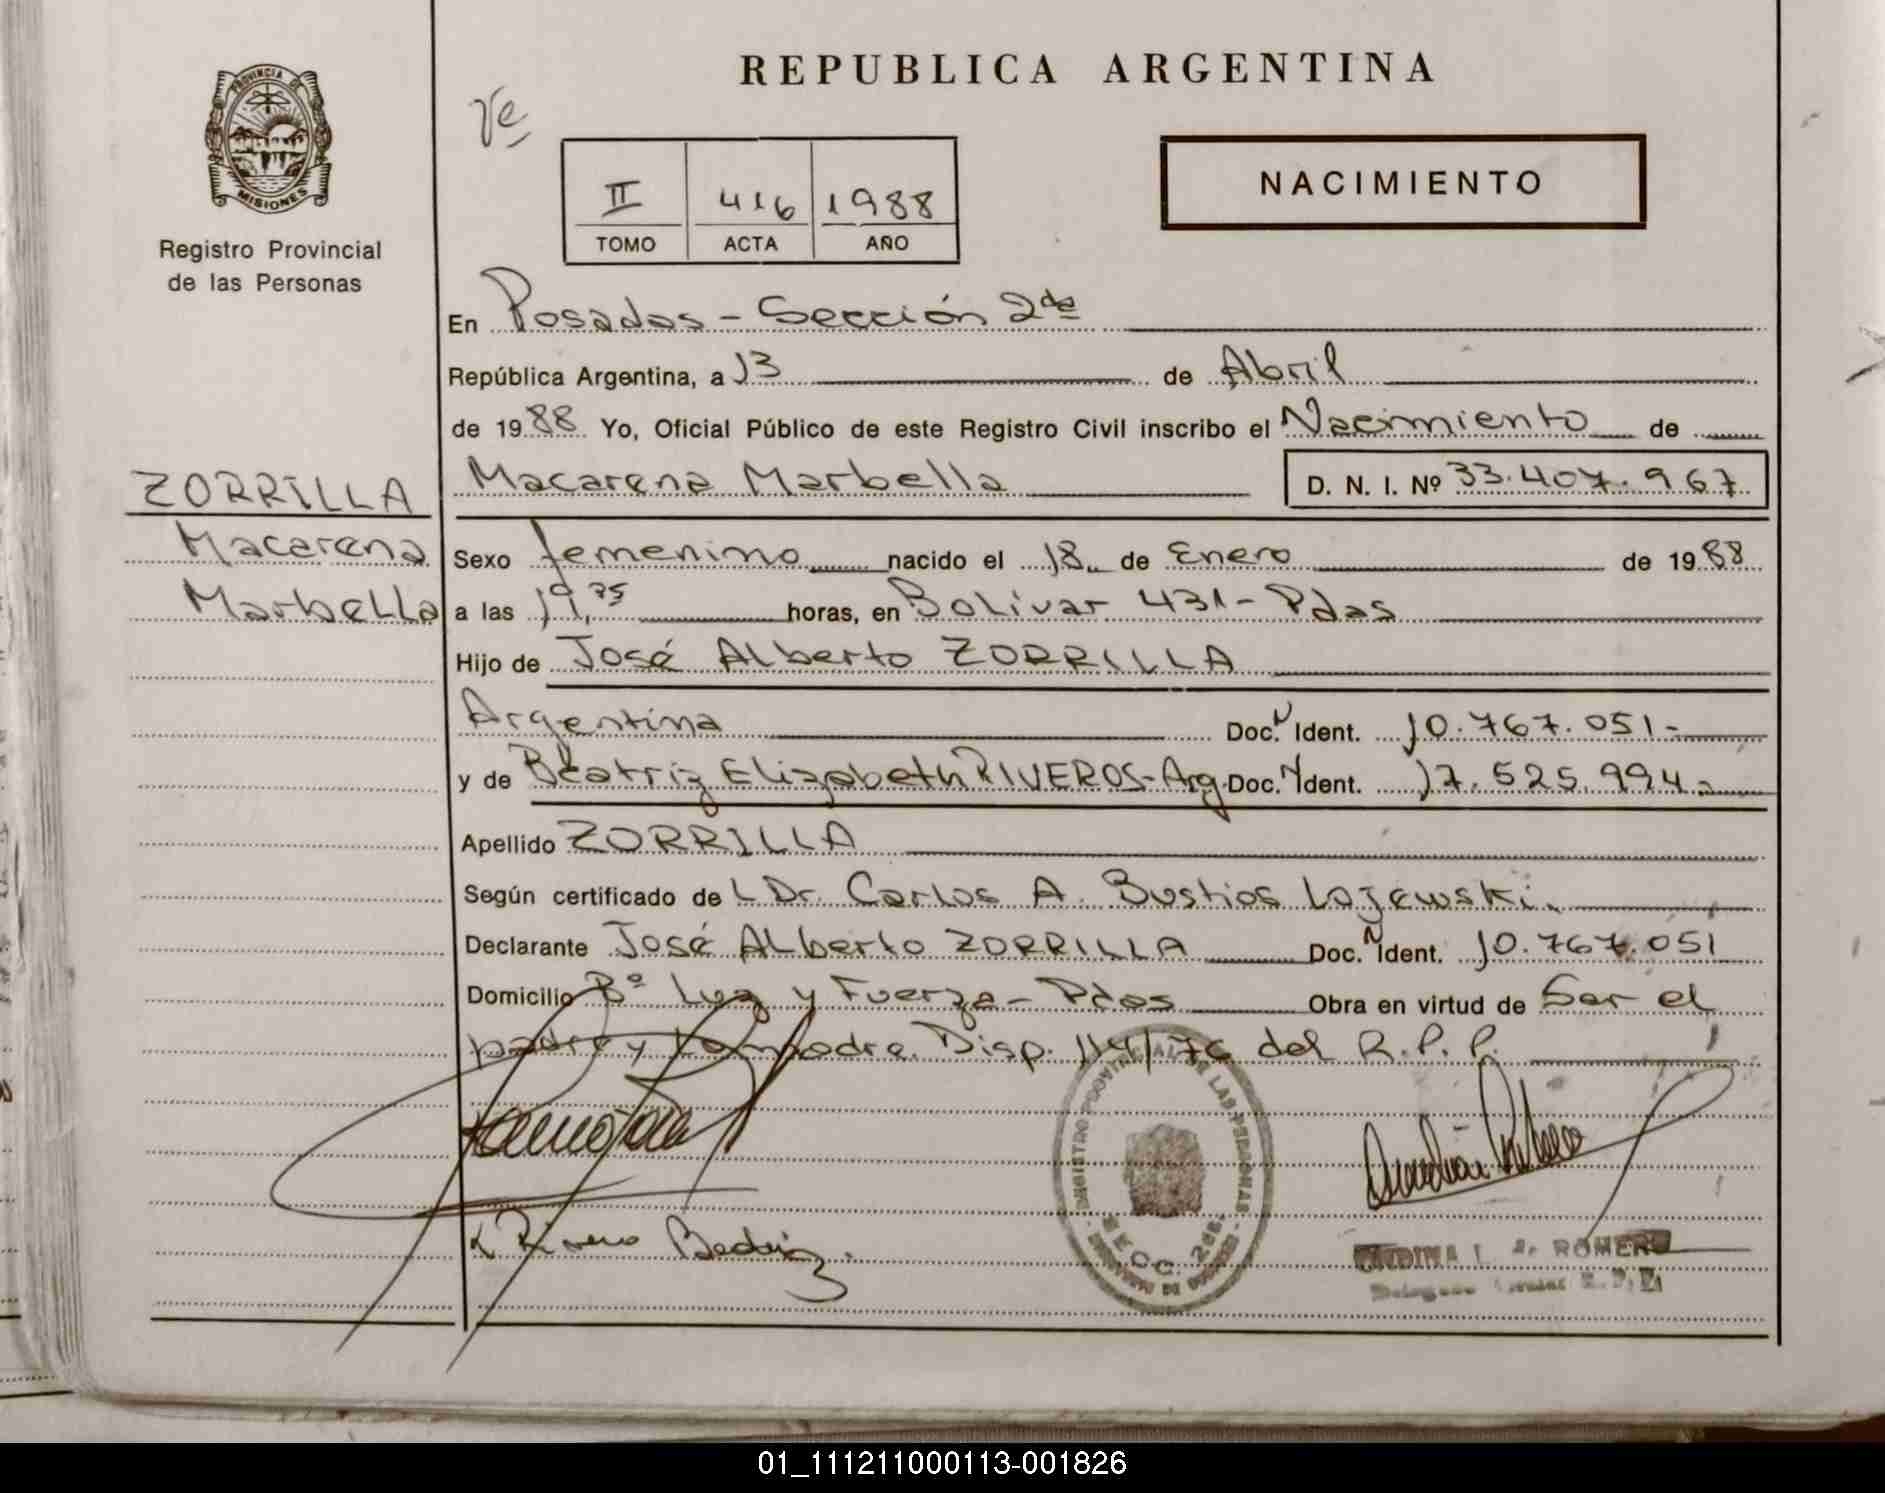 REPUBLICA ARGENTINA
PROVINCIA DE
MISIONES
Registro Provincial
de las Personas
II 416 1988
TOMO ACTA AÑO
NACIMIENTO
En Posadas - Sección 2da
República Argentina, a 13 de Abril
de 1988 Yo, Oficial Público de este Registro Civil inscribo el Nacimiento de
ZORRILLA
Macarena
Marbella
Macarena Marbella D. N. I. Nº 33.407.967
Sexo femenino nacido el 18 de Enero de 1988
a las 19, horas, en Bolivar 431 - Pdas
Hijo de José Alberto ZORRILLA
Argentina Doc. N Ident. 10.767.051.-
y de Beatriz Elizabeth RIVEROS - Arg. Doc. N Ident. 17.525.994.-
Apellido ZORRILLA
Según certificado de L Dr. Carlos A. Bustios Lojewski.
Declarante José Alberto ZORRILLA Doc. N Ident. 10.767.051
Domicilio Bº Luz y Fuerza - Pdas Obra en virtud de Ser el
padre y la madre. Disp. 114/76 del R.P.P.
REGISTRO PROVINCIAL DE LAS PERSONAS
SECC.
ROMERO
01_111211000113-001826